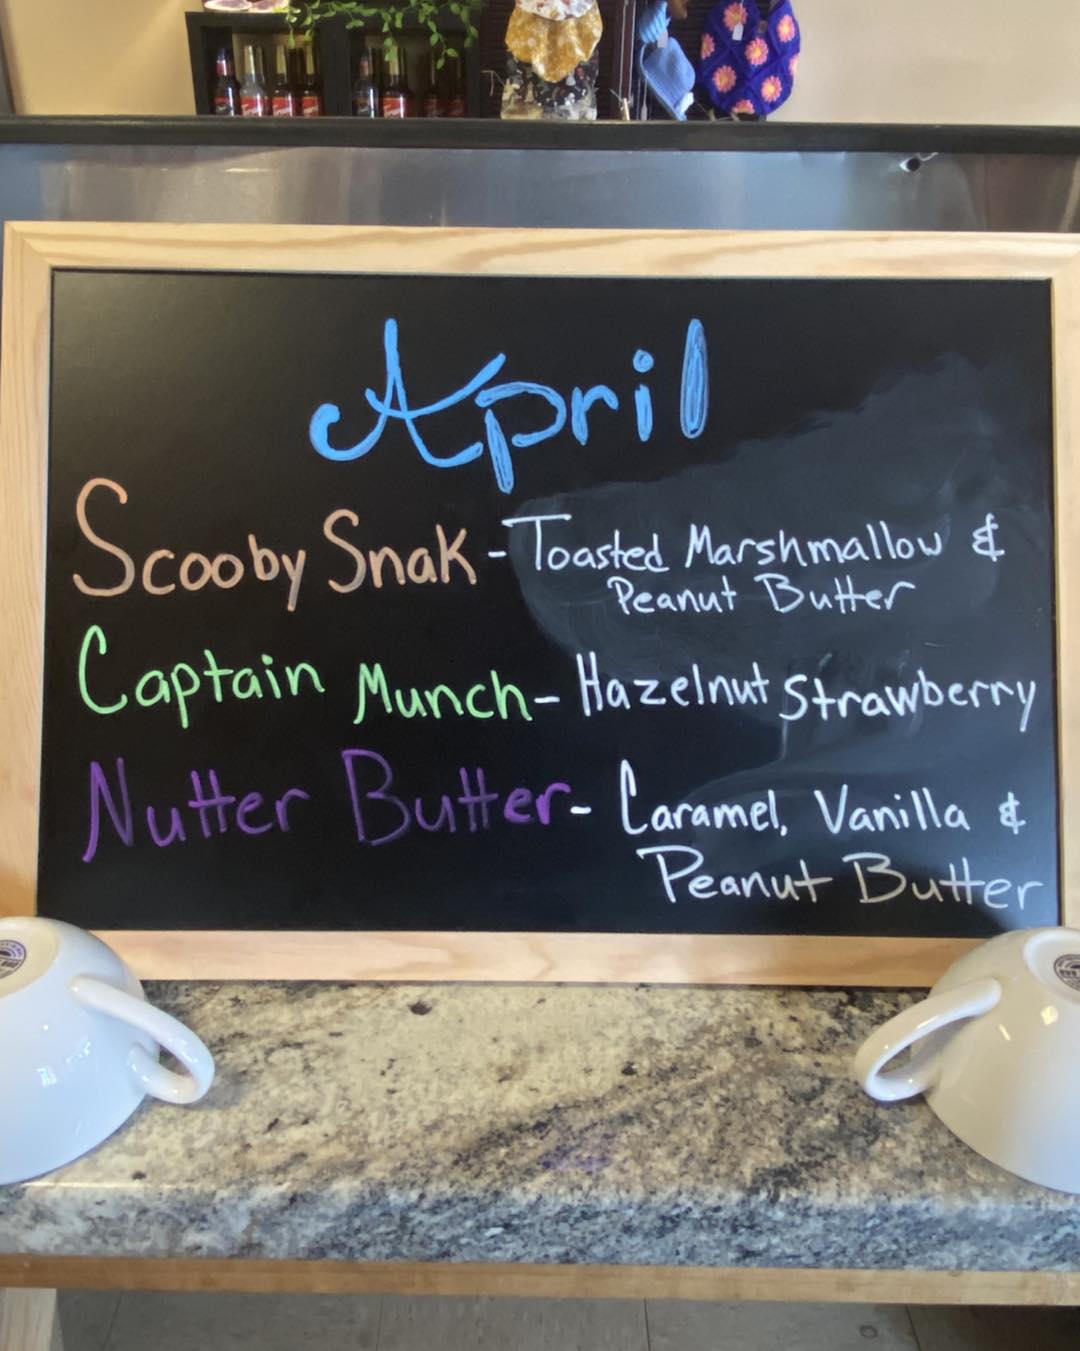 April
Scooby Snak - Toasted Marshmallow &
Peanut Butter
Captain Munch - Hazelnut Strawberry
Nutter Butter - Caramel, Vanilla &
Peanut Butter